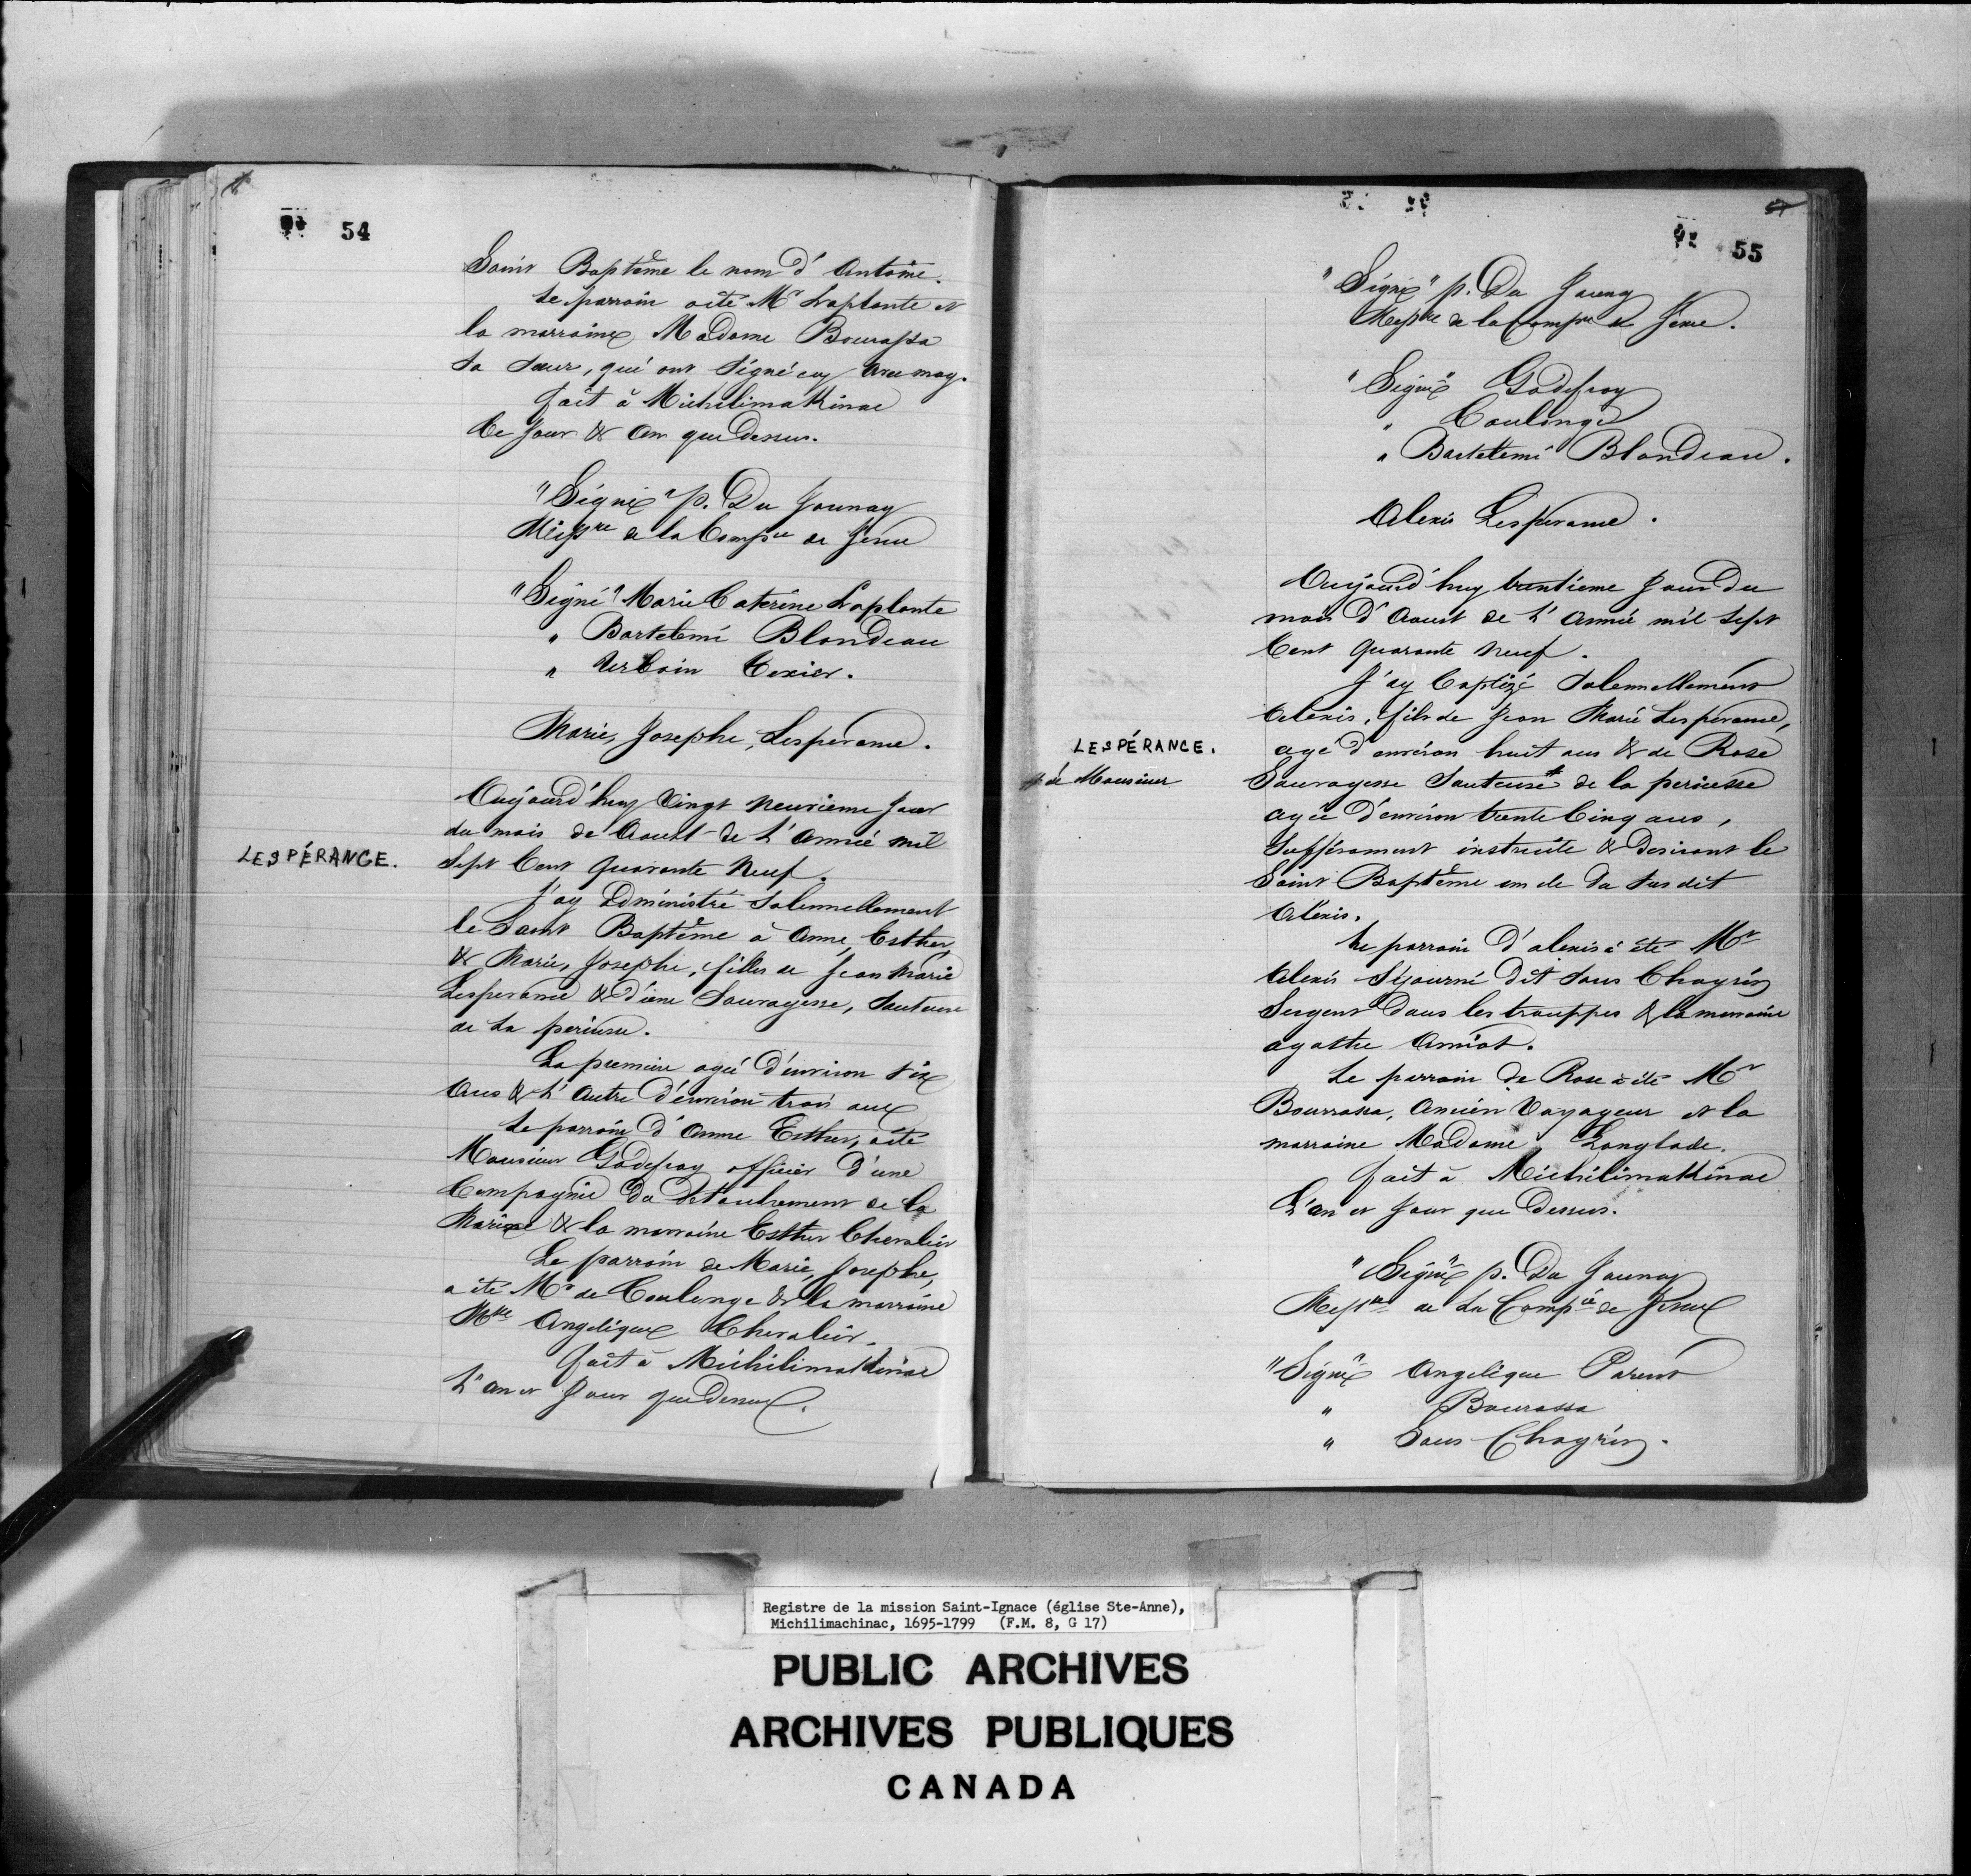 54
Saint Baptême le nom d' Antoine.
Le parrain a été Mr Laplante et
la marraine Madame Bourassa
sa sœur, qui ont signé icy avec moy.
fait à Michilimakinac
Ce Jour & An que dessus.
"Signé" p. Du Jaunay
Missre de la Compie de Jesus
"Signé" Marie Caterine Laplante
" Bartelemi Blondeau
" Urbain Texier.
Marie, Josephe, Lesperance.
Aujourd'huy Vingt neuvieme Jour
du mois de Aoust de L' Année mil
LESPÉRANCE.
Sept Cent Quarante Neuf.
J'ay Administré Solennellement
le Saint Baptême à Anne, Esther,
& Marie, Josephe, filles de Jean Marie
Lesperance & d'une Sauvagesse, Sauteuse
de La
La premiere agée d'environ six
Ans & L' Autre d'environ trois ans
Le parrain d' Anne Esther, a été
Monsieur Godefroy officier d'une
Compagnie du Detachement de la
Marine & la marraine Esther Chevalier
Le parrain de Marie, Josephe,
a été Mr de Coulonge & la marraine
Mlle Angelique Chevalier.
fait à Michilimakinac
L'an et Jour que dessus.
55
"Signé" p. Du Jaunay
Missre de la Compie de Jesus.
"Signé" Godefroy
" Coulonge
" Bartelemi Blondeau.
Alexis Lesperance.
Aujourd'huy trentieme Jour du
mois d' Aoust de L' Année mil sept
Cent Quarante Neuf.
J'ay baptizé Solennellement
Alexis, fils de Jean Marie Lesperance,
LESPÉRANCE.
agé d'environ huit ans & de Rose
# de Monsieur
Sauvagesse Sauteuse # de la
agée d'environ trente Cinq ans,
Suffisament instruite & Desirant le
Saint Baptême du susdit
Alexis.
Le parrain d'alexis à été Mr
Alexis Séjourné dit sans Chagrin
Sergent dans les trouppes & la marraine
agathe Amiot.
Le parrain de Rose à été Mr
Bourrassa, Ancien Voyageur et la
marraine Madame Langlade.
fait à Michilimakinac
L'an et Jour que Dessus.
"Signé" p. Du Jaunay
Missre de La Compie de Jesus
"Signé" Angelique Parent
" Bourassa
" Sans Chagrin.
Registre de la mission Saint-Ignace (église Ste-Anne),
Michilimachinac, 1695-1799 (F.M. 8, G 17)
PUBLIC ARCHIVES
ARCHIVES PUBLIQUES
CANADA